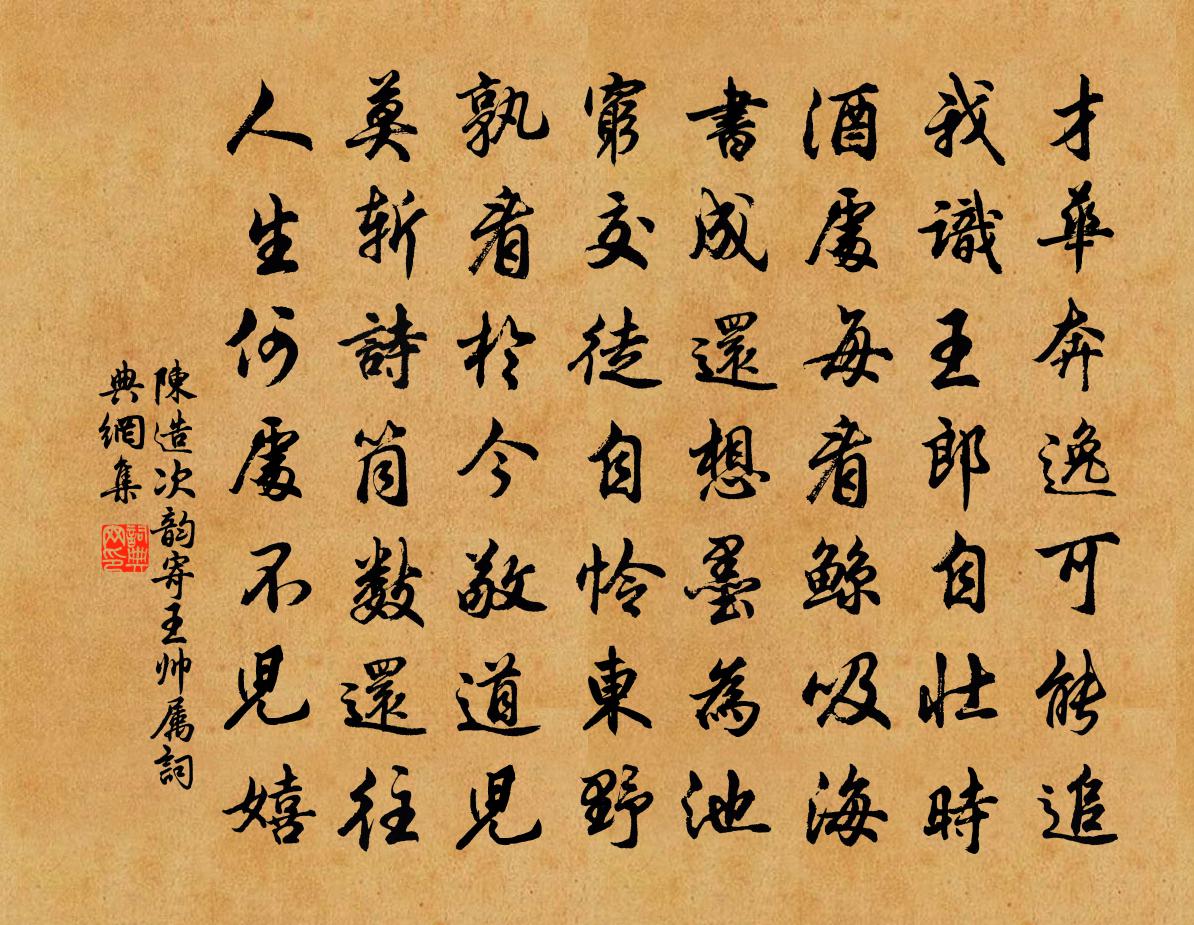 才華奔逸可能追
我識王郎自壯時
酒處每看鯨吸海
書成還想墨為池
窮交徒自憐東野
孰看於今敬道兒
莫斬詩筒數還往
人生何處不兒嬉
陳造次韵寄王帅属詞
典網集
詞典網印